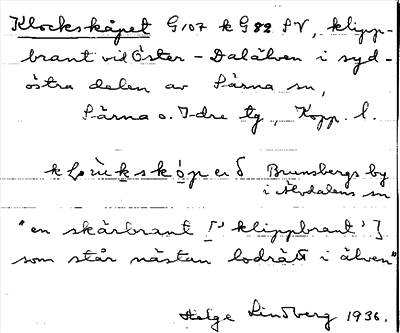 Klockskåpet G107 k G82 SV, klipp-
brant vid Öster-Dalälven i syd-
östra delen av Särna sn,
Särna o. Idre tg, Kopp. l.
Brunsbergs by
i Älvdalens sn
"en skärbrant ['klippbrant']
som står nästan lodrätt i älven"
Helge Lindberg 1936.